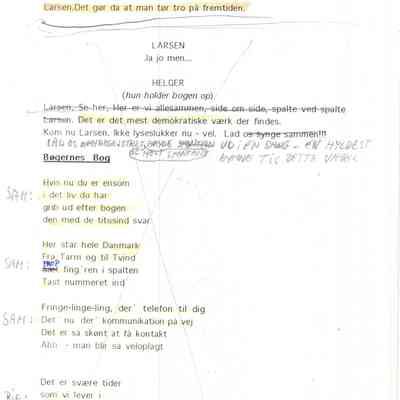 Larsen.Det gør da at man tør tro på fremtiden.
LARSEN
Ja jo men...
HELGER
(hun holder bogen op)
Larsen, Se her, Her er vi allesammen, side om side, spalte ved spalte
Larsen. Det er det mest demokratiske værk der findes.
Kom nu Larsen. Ikke lyseslukker nu - vel. Lad os synge sammen!!!
LAD OS BRYDE UD I EN SANG - EN HYLDEST
HYMNE TIL DETTE VÆRK
Bøgernes Bog
SAM:
Hvis nu du er ensom
i det liv du har
grib ud efter bogen
den med de titusind svar
SAM:
Her står hele Danmark
Fra Tarm og til Tvind
PROP
fing´ren i spalten
Tast nummeret ind´
SAM:
Fringe-linge-ling, der´ telefon til dig
Det´ nu der´ kommunikation på vej
Det er så skønt at få kontakt
Ahh - man blir så veloplagt
Det er svære tider
som vi lever i